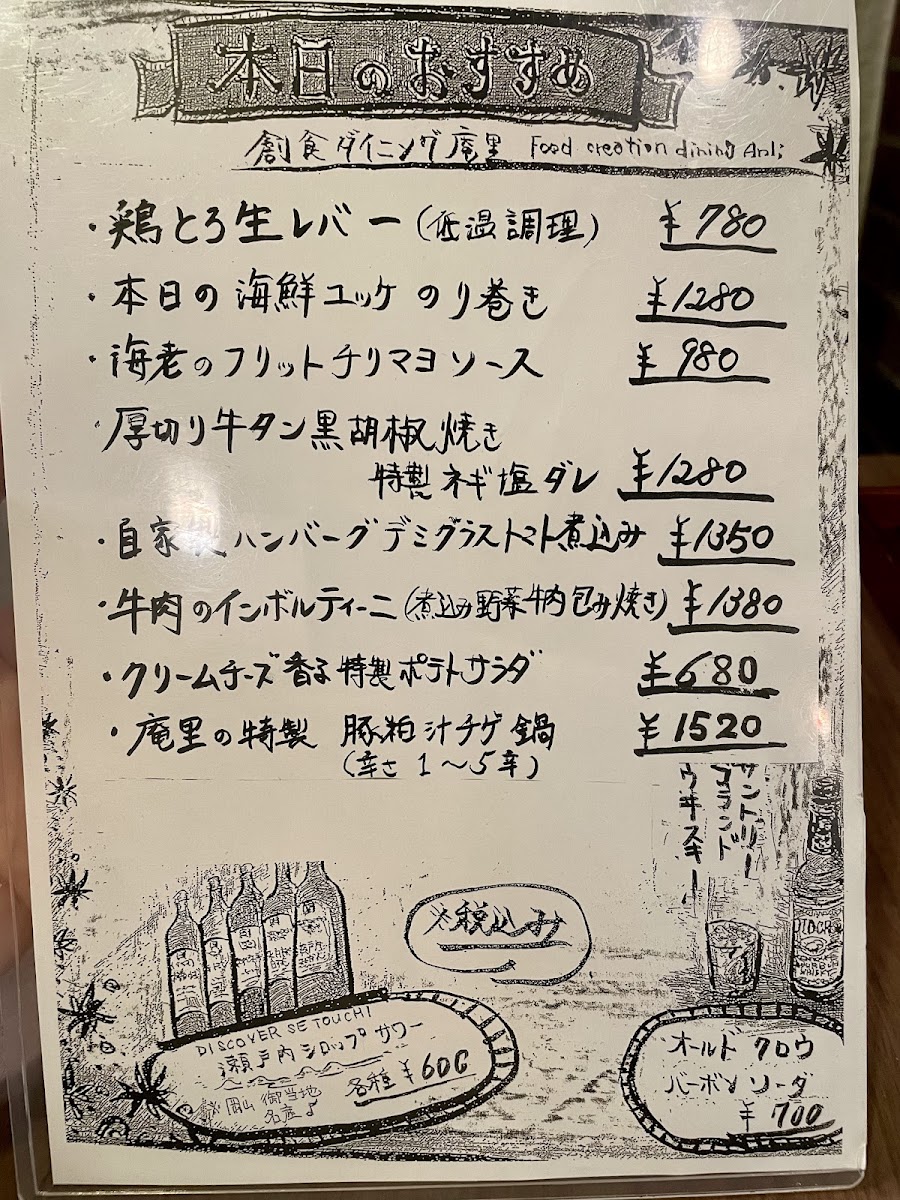 本日のおすすめ
創食ダイニング庵里 Food creation dining Anli
・鶏とろ生レバー(低温調理) ¥780
・本日の海鮮ユッケ のり巻き ¥1280
・海老のフリットチリマヨソース ¥980
厚切り牛タン黒胡椒焼き
特製ネギ塩ダレ ¥1280
・自家製ハンバーグデミグラストマト煮込み ¥1350
・牛肉のインボルティーニ(煮込み野菜牛肉包み焼き) ¥1380
・クリームチーズ香る特製ポテトサラダ ¥680
・庵里の特製 豚粕汁チゲ鍋 ¥1520
(辛さ1〜5辛)
サントリー
ブランド
ウヰスキー
※税込み
DISCOVER SETOUCHI
瀬戸内シロップサワー
各種¥600
※岡山御当地
名産♪
オールド クロウ
バーボンソーダ
¥700